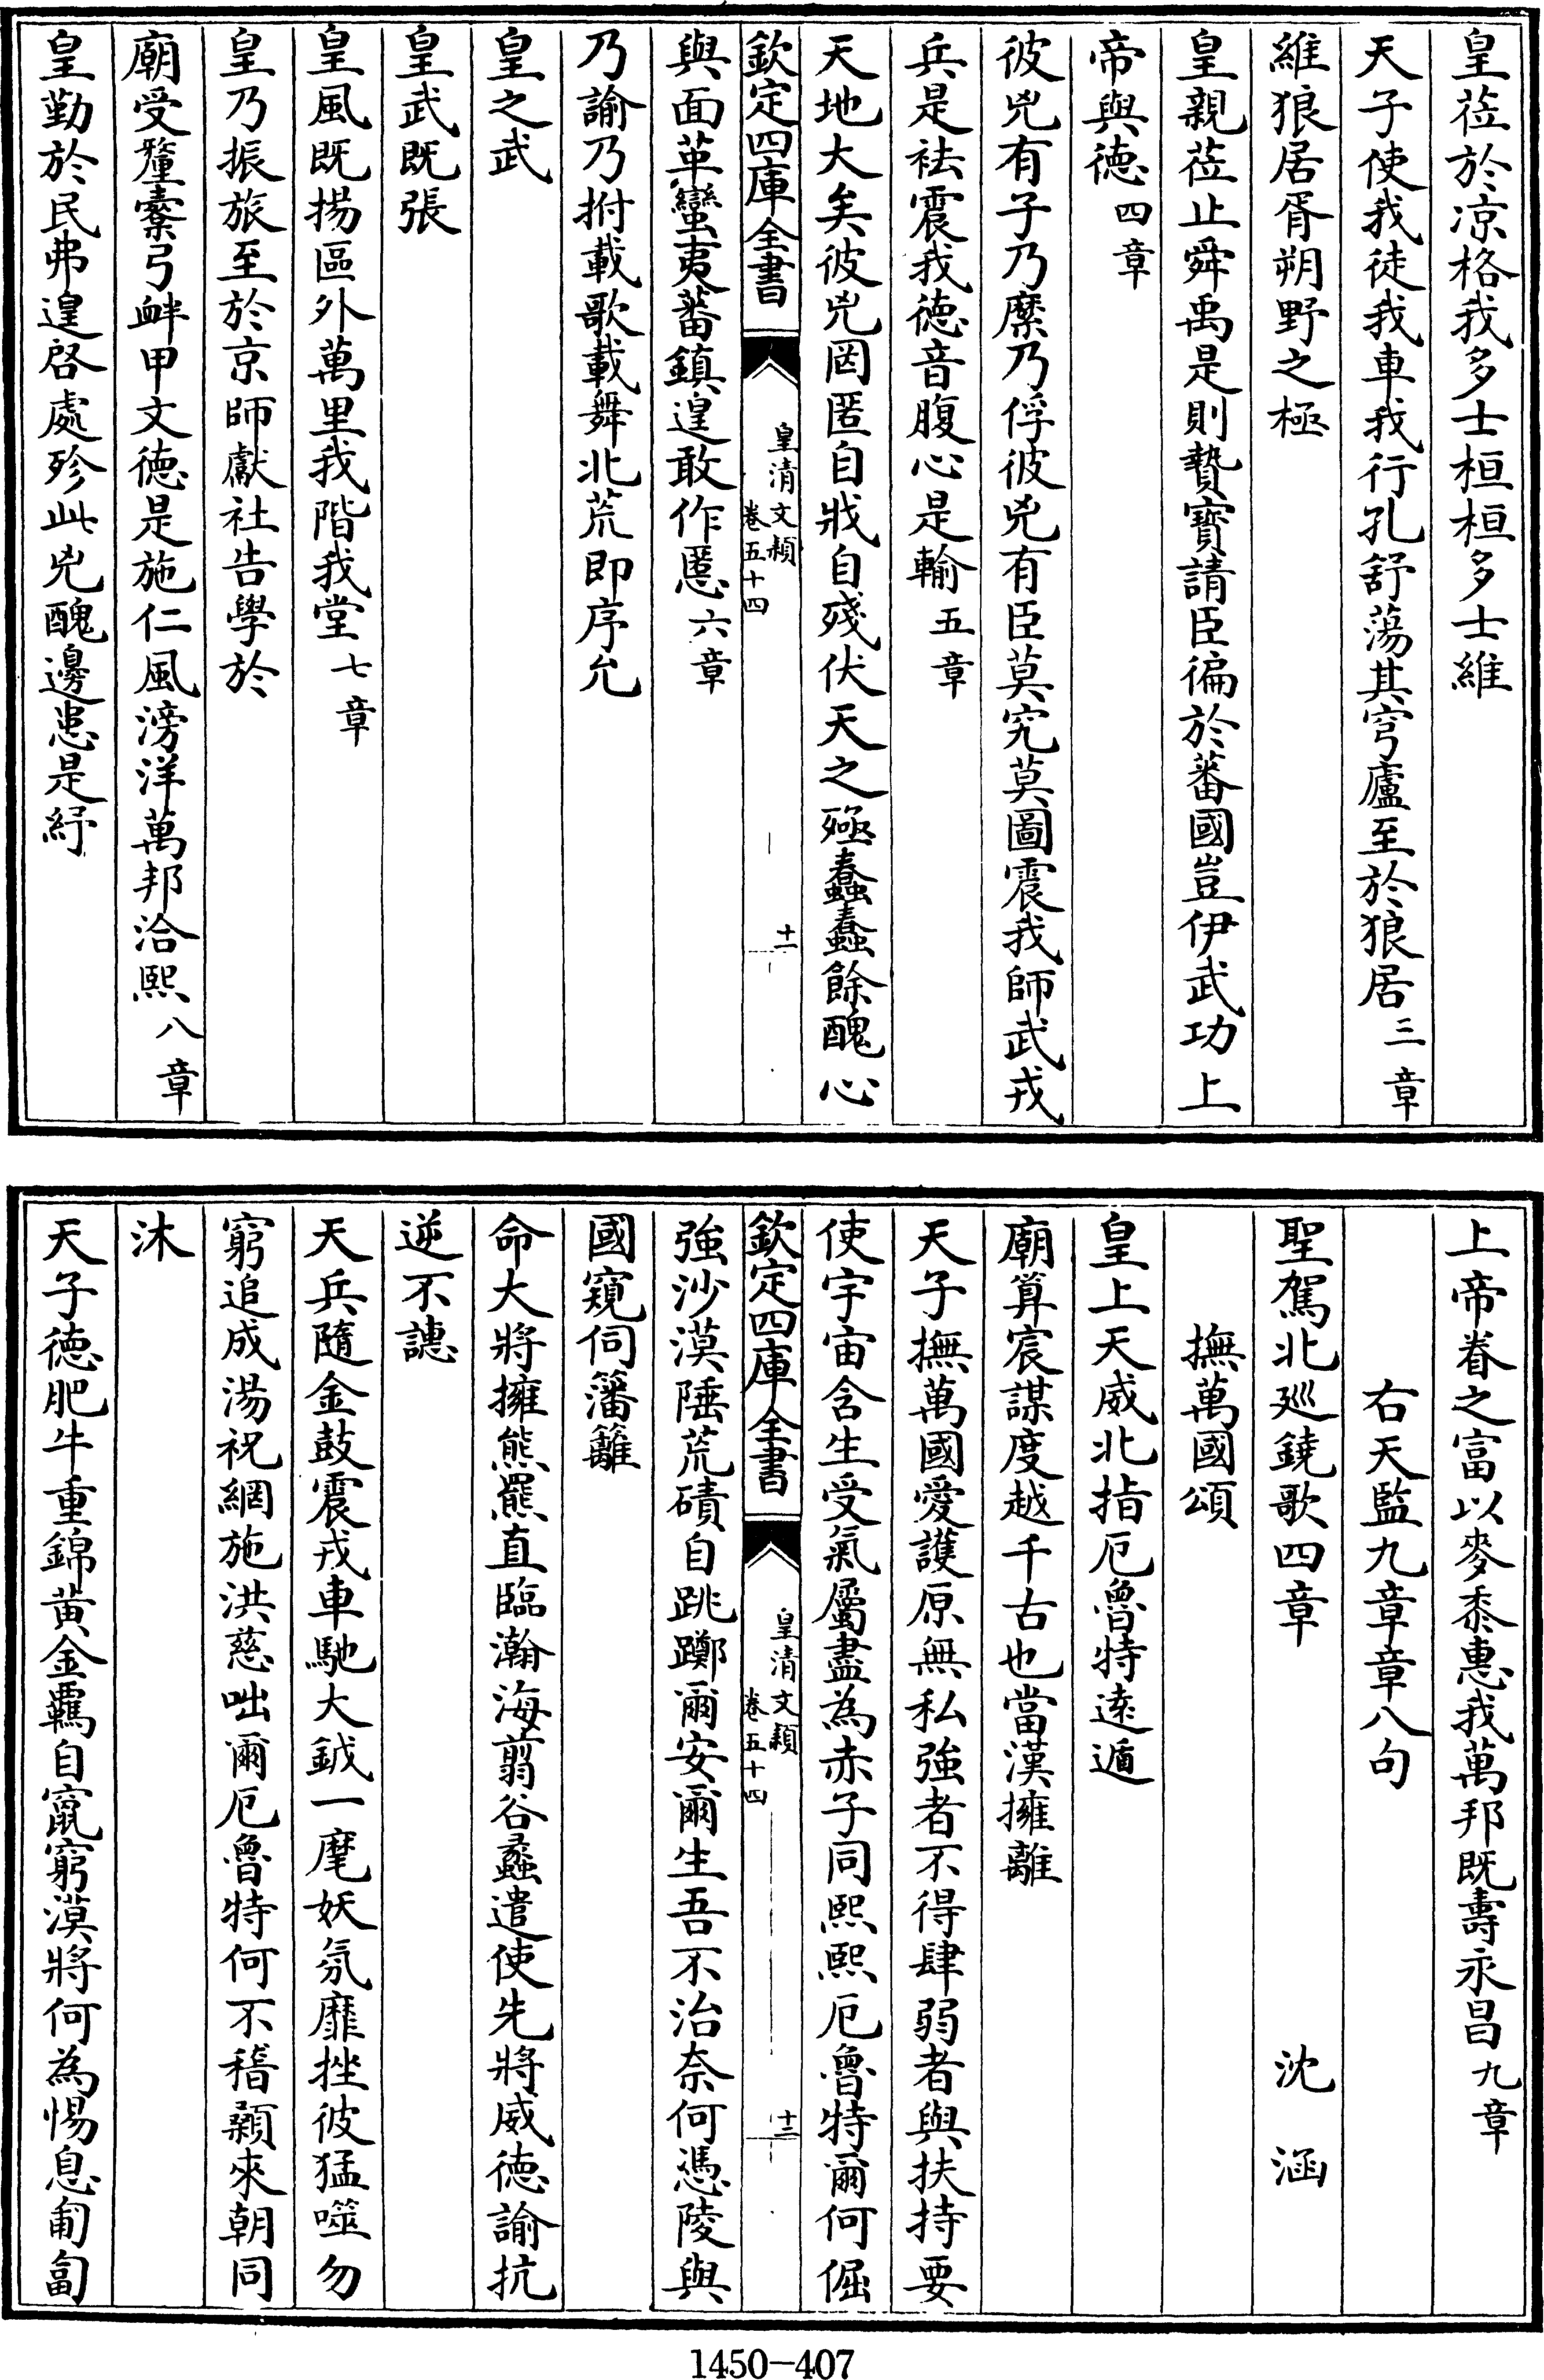 皇莅於凉格我多士桓桓多士維
天子使我徒我車我行孔舒蕩其穹廬至於狼居三章
維狼居胥朔野之極
皇親莅止舜禹是則贄寳請臣徧於蕃國豈伊武功上
帝與德四章
彼兇有子乃縻乃俘彼兇有臣莫究莫圖震我師武戎
兵是祛震我德音腹心是輸五章
天地大矣彼兇罔匿自戕自殘伏天之殛蠢蠢餘醜心
欽定四庫全書
皇清文穎
卷五十四
十一
與面革蠻夷蕃鎮遑敢作慝六章
乃諭乃拊載歌載舞北荒即序允
皇之武
皇武既張
皇風既揚區外萬里我階我堂七章
皇乃振旅至於京師獻社告學於
廟受釐櫜弓衅甲文德是施仁風滂洋萬邦洽熙八章
皇勤於民弗遑啓處殄此兇醜邊患是紓
上帝眷之富以麥黍惠我萬邦既壽永昌九章
右天監九章章八句
聖駕北廵鐃歌四章
沈涵
撫萬國頌
皇上天威北指厄魯特遠遁
廟算宸謀度越千古也當漢擁離
天子撫萬國愛護原無私強者不得肆弱者與扶持要
使宇宙含生受氣屬盡為赤子同熙熙厄魯特爾何倔
欽定四庫全書
皇清文穎
卷五十四
十二
強沙漠陲荒磧自跳躑爾安爾生吾不治奈何憑陵與
國窺伺籓籬
命大將擁熊羆直臨瀚海翦谷蠡遣使先將威德諭抗
逆不譓
天兵隨金鼓震戎車馳大鉞一麾妖氛靡挫彼猛噬勿
窮追成湯祝網施洪慈咄爾厄魯特何不稽顙來朝同
沐
天子德肥牛重錦黄金覊自竄窮漠將何為惕息匍匐
1450-407